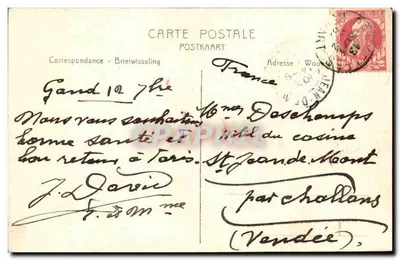 CARTE POSTALE
POSTKAART
Correspondance - Briefwisseling
Adresse
France
Gand 12 7bre
Nous vous souhaitons
bonne santé et
bon retour à Paris.
J. David
Deschamps
hôtel du casino
St Jean de Mont
par challans
(Vendée)